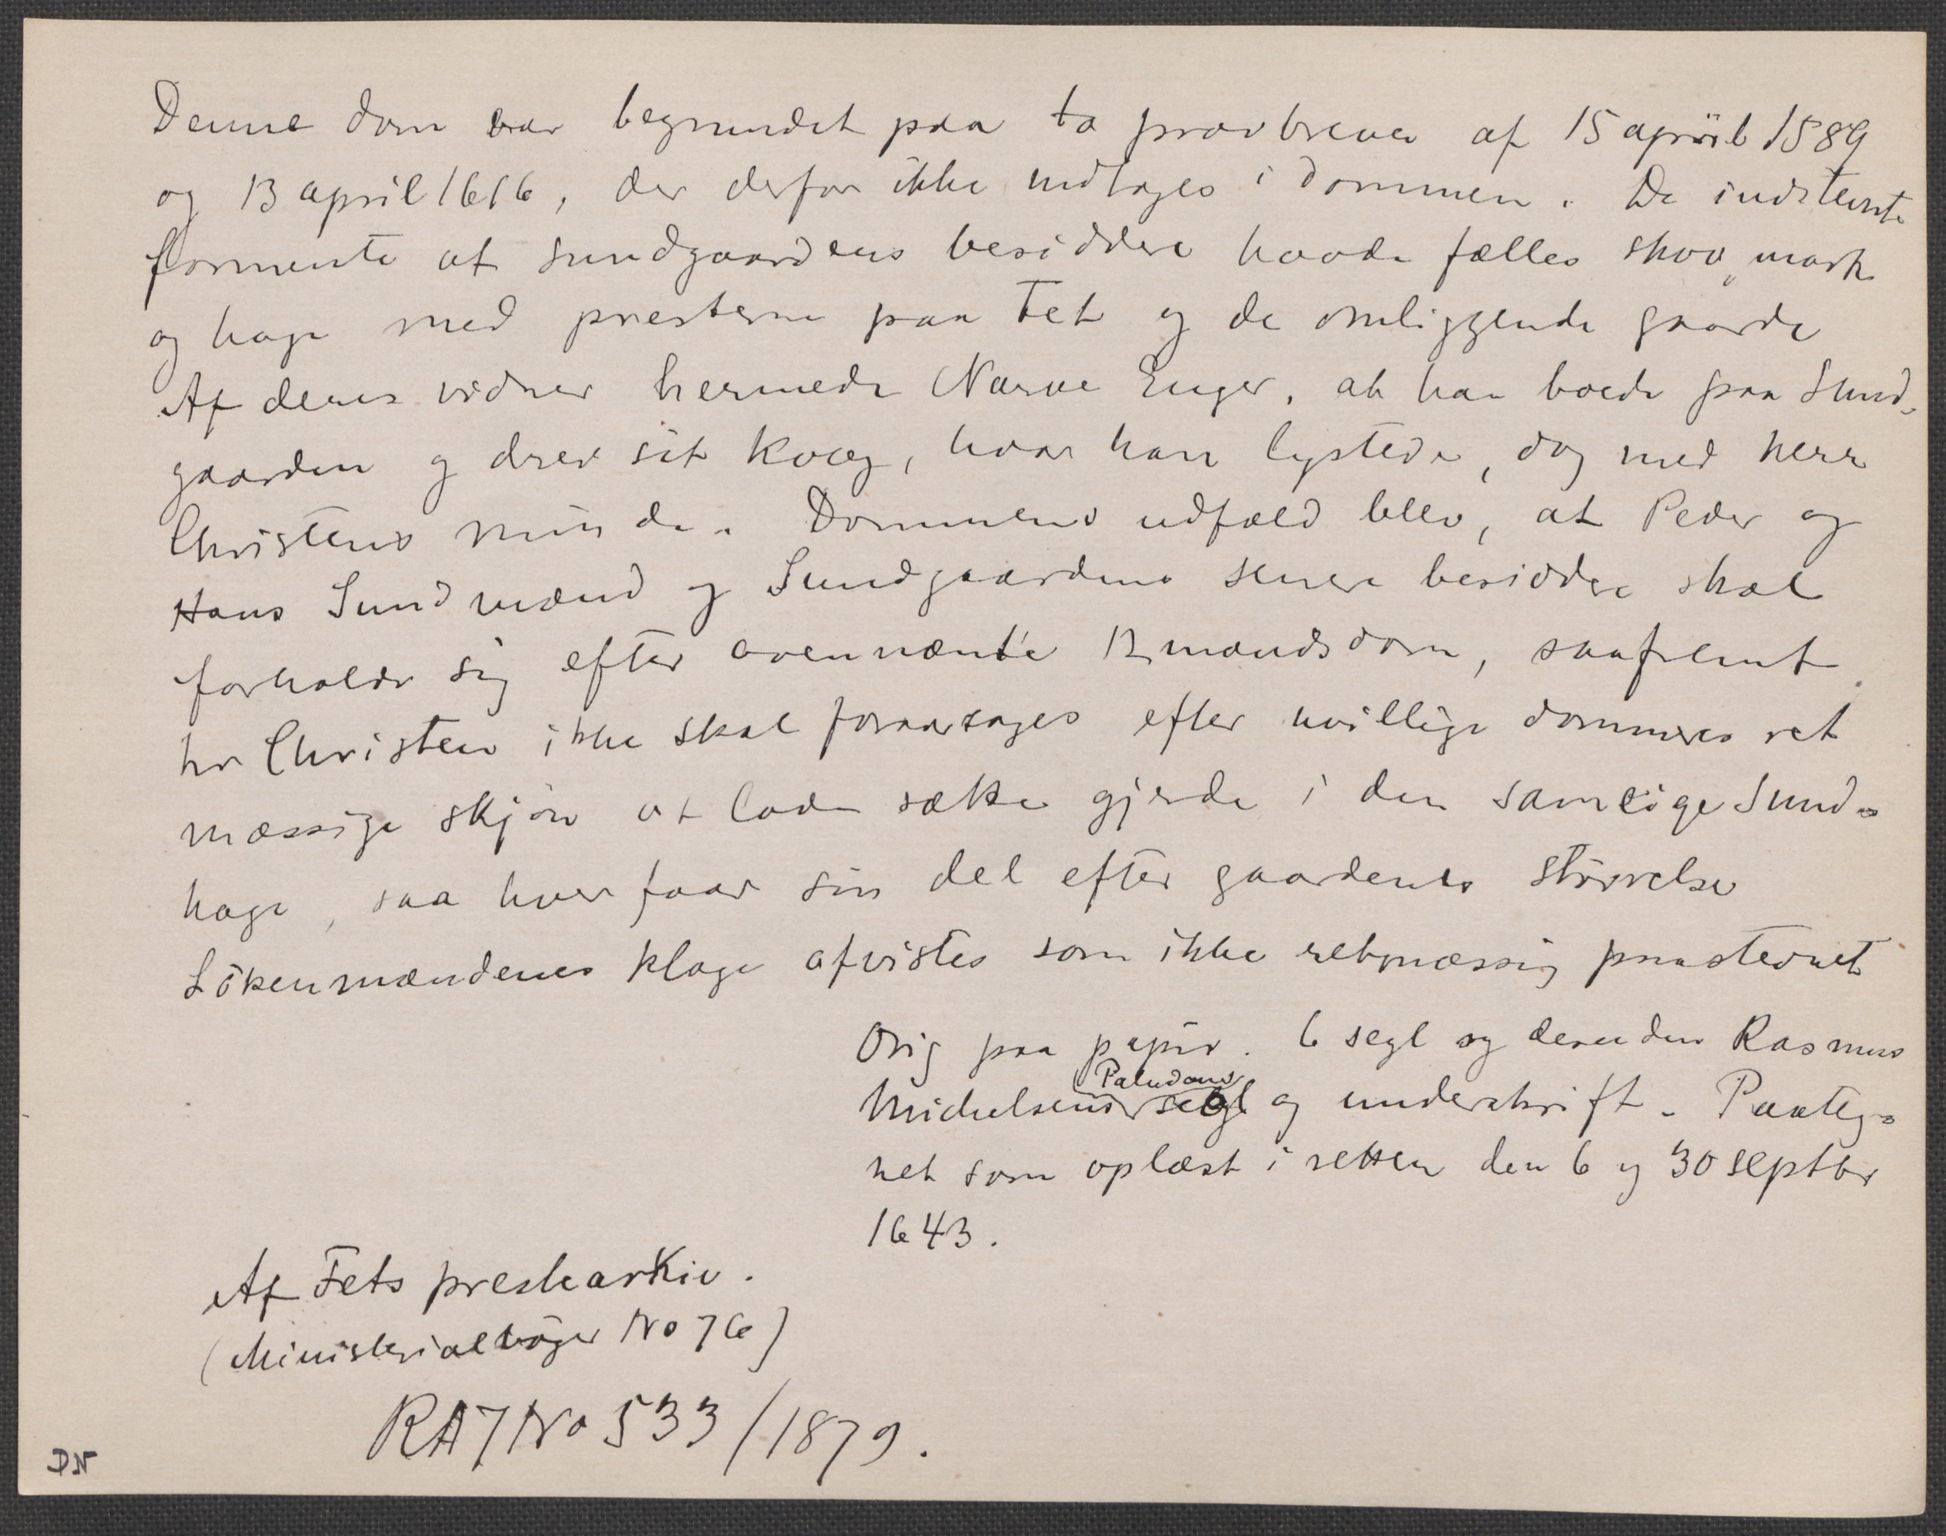 Denne dom var begrundet paa to prøvbreve af 15 april 1589
og 13 april 1616, der derfor ikke indtages i dommen. De indstevnte
formente at sundgaardens besiddere havde fælles skov, mark
og hage med presterne paa Fet og de omliggende gaarde
Af deres vidner hermedr Narve Enger, at han boede paa Sund-
gaarden og drev sit kvæg, hvor han lystede, dog med herr
Christens minde. Dommens udfald blev, at Peder og
Hans Sundmænd og Sundgaardens senere besiddere skal
forholde sig efter ovennænte 12 mandsdom, saafremt
hr Christen ikke skal foraarsages efter uvillige dommeres ret
mæssige skjøn at lade sætte gjerde i den samlige Sund-
hage, saa hver faar sin del efter gaardenes størrelse
Løkenmændenes klage afvistes som ikke retmæssig paastevnet
Orig paa papir. 6 segl og desuden Rasmus
Paludans
Michelsens segl og underskrift. Paateg-
net som oplæst i retten den 6 og 30 septbr
1643.
Af Fets prestearkiv.
(Ministerialbøger No 76)
RA 7 No 533/1879.
DN